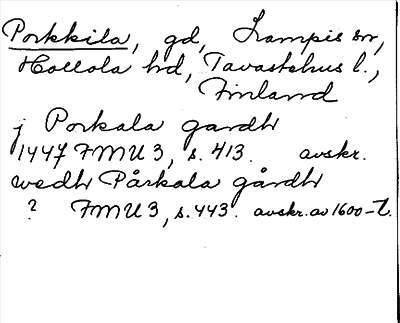 Porkkila, gd, Lampis sn,
Hollola hd, Tavastehus l.,
Finland
j Porkala gardh
1447 FMU 3, s. 413. avskr.
wedh Pårkala gårdh
? FMU 3, s. 443. avskr. av 1600-t.